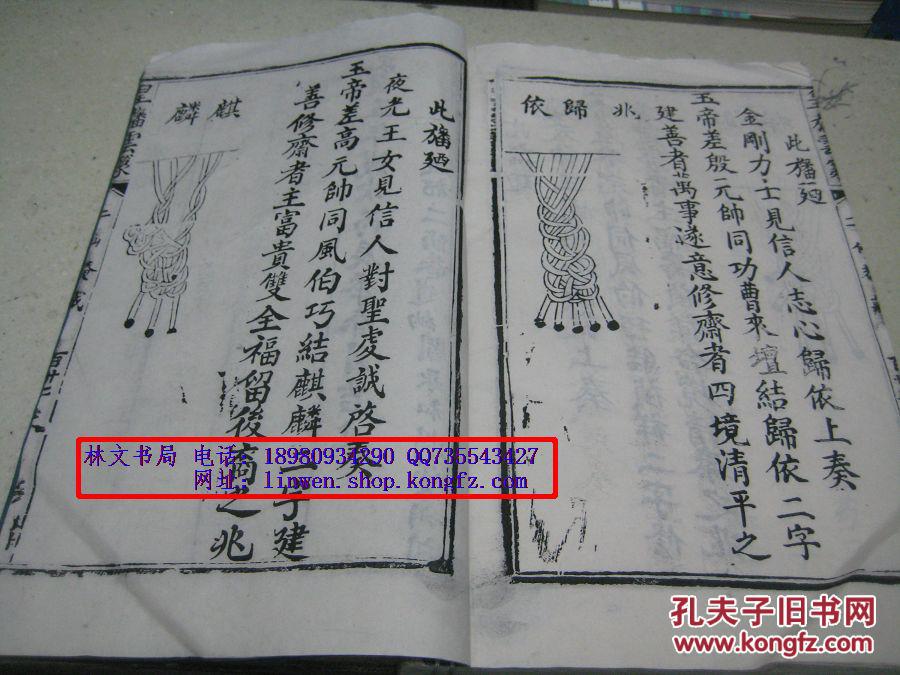 此旛廼
金剛力士見信人志心歸依上奏
玉帝差殷元帥同功曹來壇結歸依二字
建善者萬事遂意修齋者四境清平之
兆
歸依
此旛廼
夜光王女見信人對聖虔誠啓奏
玉帝差高元帥同風伯巧結麒麟二字建
善修齋者主富貴雙全福留後裔之兆
麒麟
林文书局 电话：18980934290 QQ735543427
网址：linwen.shop.kongfz.com
孔夫子旧书网
www.kongfz.com